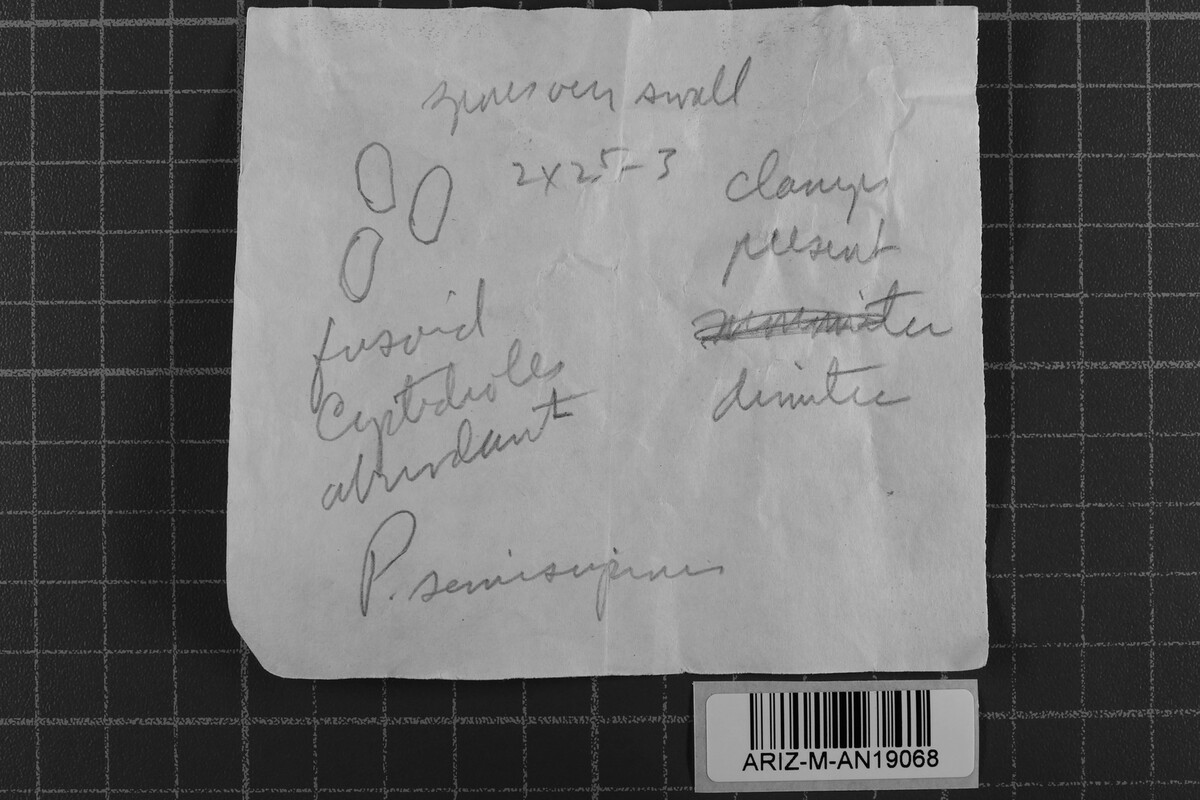 spores very small
2x25-3
clamps
present
monomitic
dimitic
fusoid
Cystidioles
abundant
P. semisupinus
ARIZ-M-AN19068